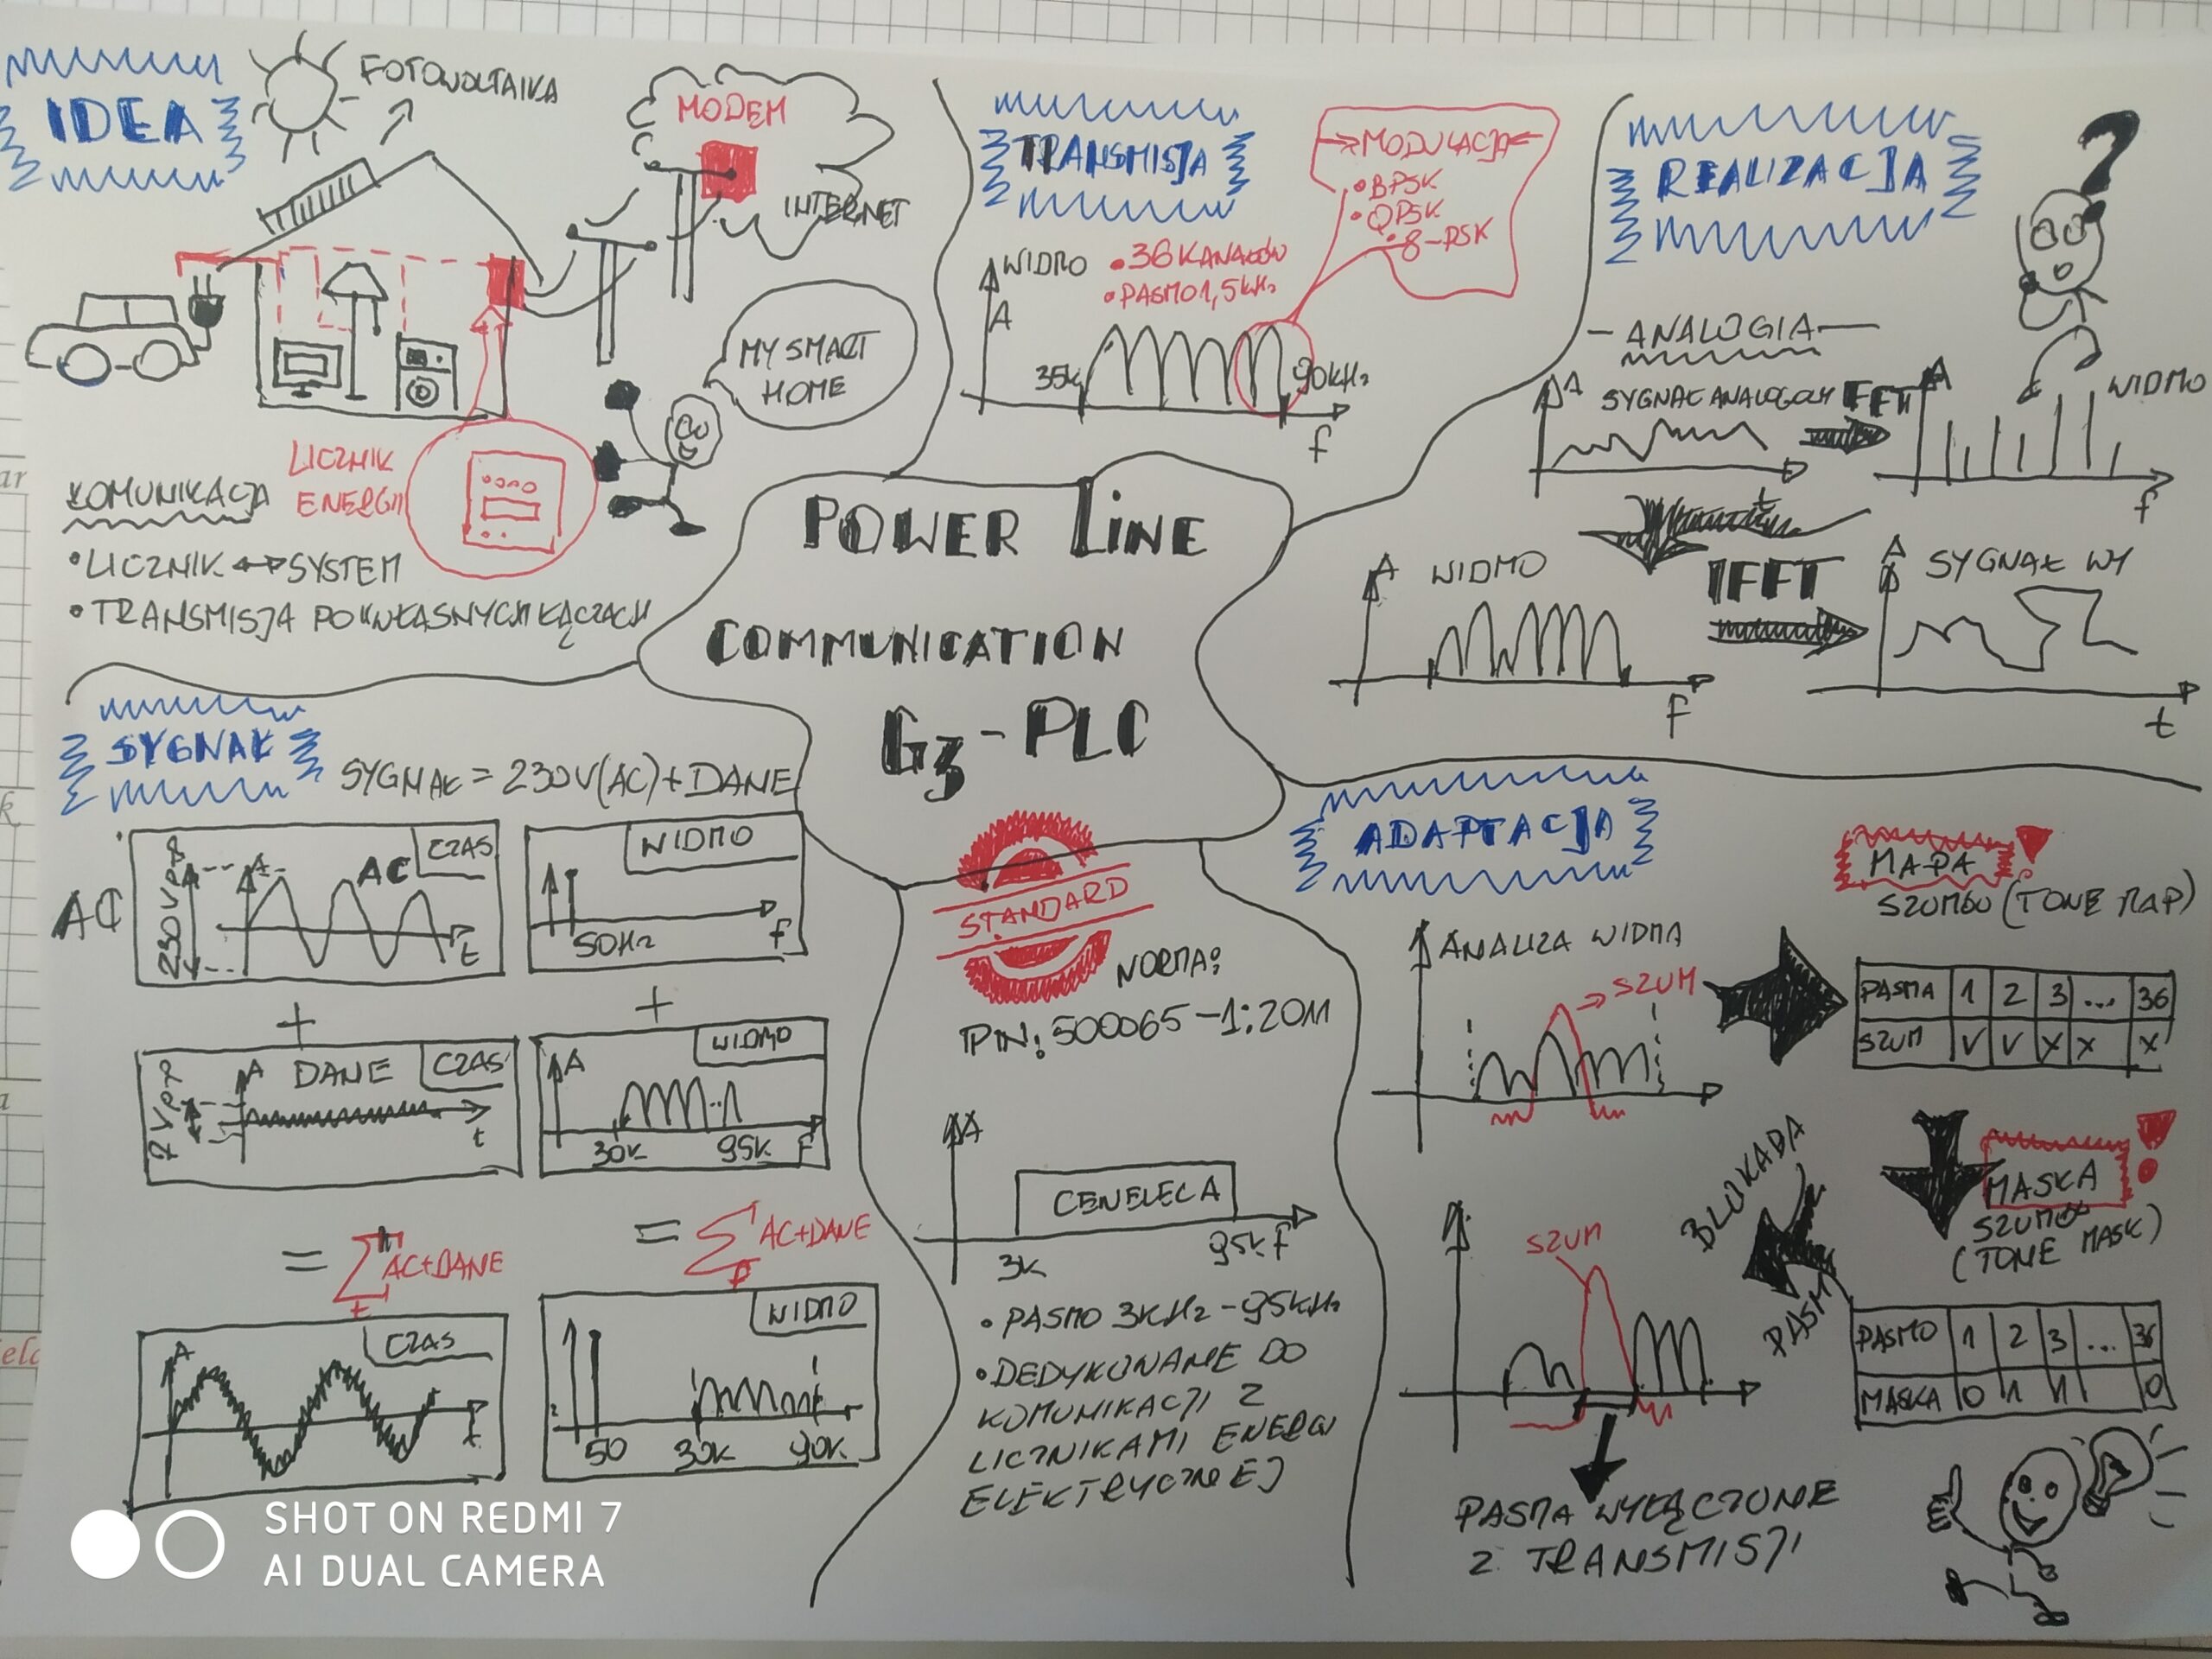 IDEA
FOTOWOLTAIKA
MODEM
INTERNET
MY SMART
HOME
LICZNIK
ENERGII
KOMUNIKACJA
• LICZNIK ↔ SYSTEM
• TRANSMISJA PO WŁASNYCH ŁĄCZACH
TRANSMISJA
MODULACJA
• BPSK
• QPSK
• 8-PSK
WIDMO
• 36 KANAŁÓW
• PASMO 1,5kHz
A
35k
90kHz
f
REALIZACJA
?
ANALOGIA
A
SYGNAŁ ANALOGOWY
t
FFT
A
WIDMO
f
A
WIDMO
F
IFFT
A
SYGNAŁ WY
t
POWER LINE
COMMUNICATION
G3-PLC
SYGNAŁ
SYGNAŁ = 230V(AC) + DANE
AC
230VPP
A
AC
CZAS
t
WIDMO
50Hz
f
+
+
2VPP
A
DANE
CZAS
t
A
WIDMO
30k
95k
F
= Σ AC+DANE
t
= Σ AC+DANE
F
A
CZAS
t
WIDMO
50
30k
90k
STANDARD
NORMA:
PN: 500065-1:2011
A
CENELEC A
3k
95k
f
• PASMO 3kHz-95kHz
• DEDYKOWANE DO
KOMUNIKACJI Z
LICZNIKAMI ENERGII
ELEKTRYCZNEJ
ADAPTACJA
ANALIZA WIDMA
SZUM
MAPA !
SZUMÓW (TONE MAP)
PASMA 1 2 3 ... 36
SZUM V V X X X
MASKA !
SZUMÓW
(TONE MASK)
BLOKADA
PASM
PASMO 1 2 3 ... 36
MASKA 0 1 1 0
SZUM
PASMA WYŁĄCZONE
Z TRANSMISJI
SHOT ON REDMI 7
AI DUAL CAMERA